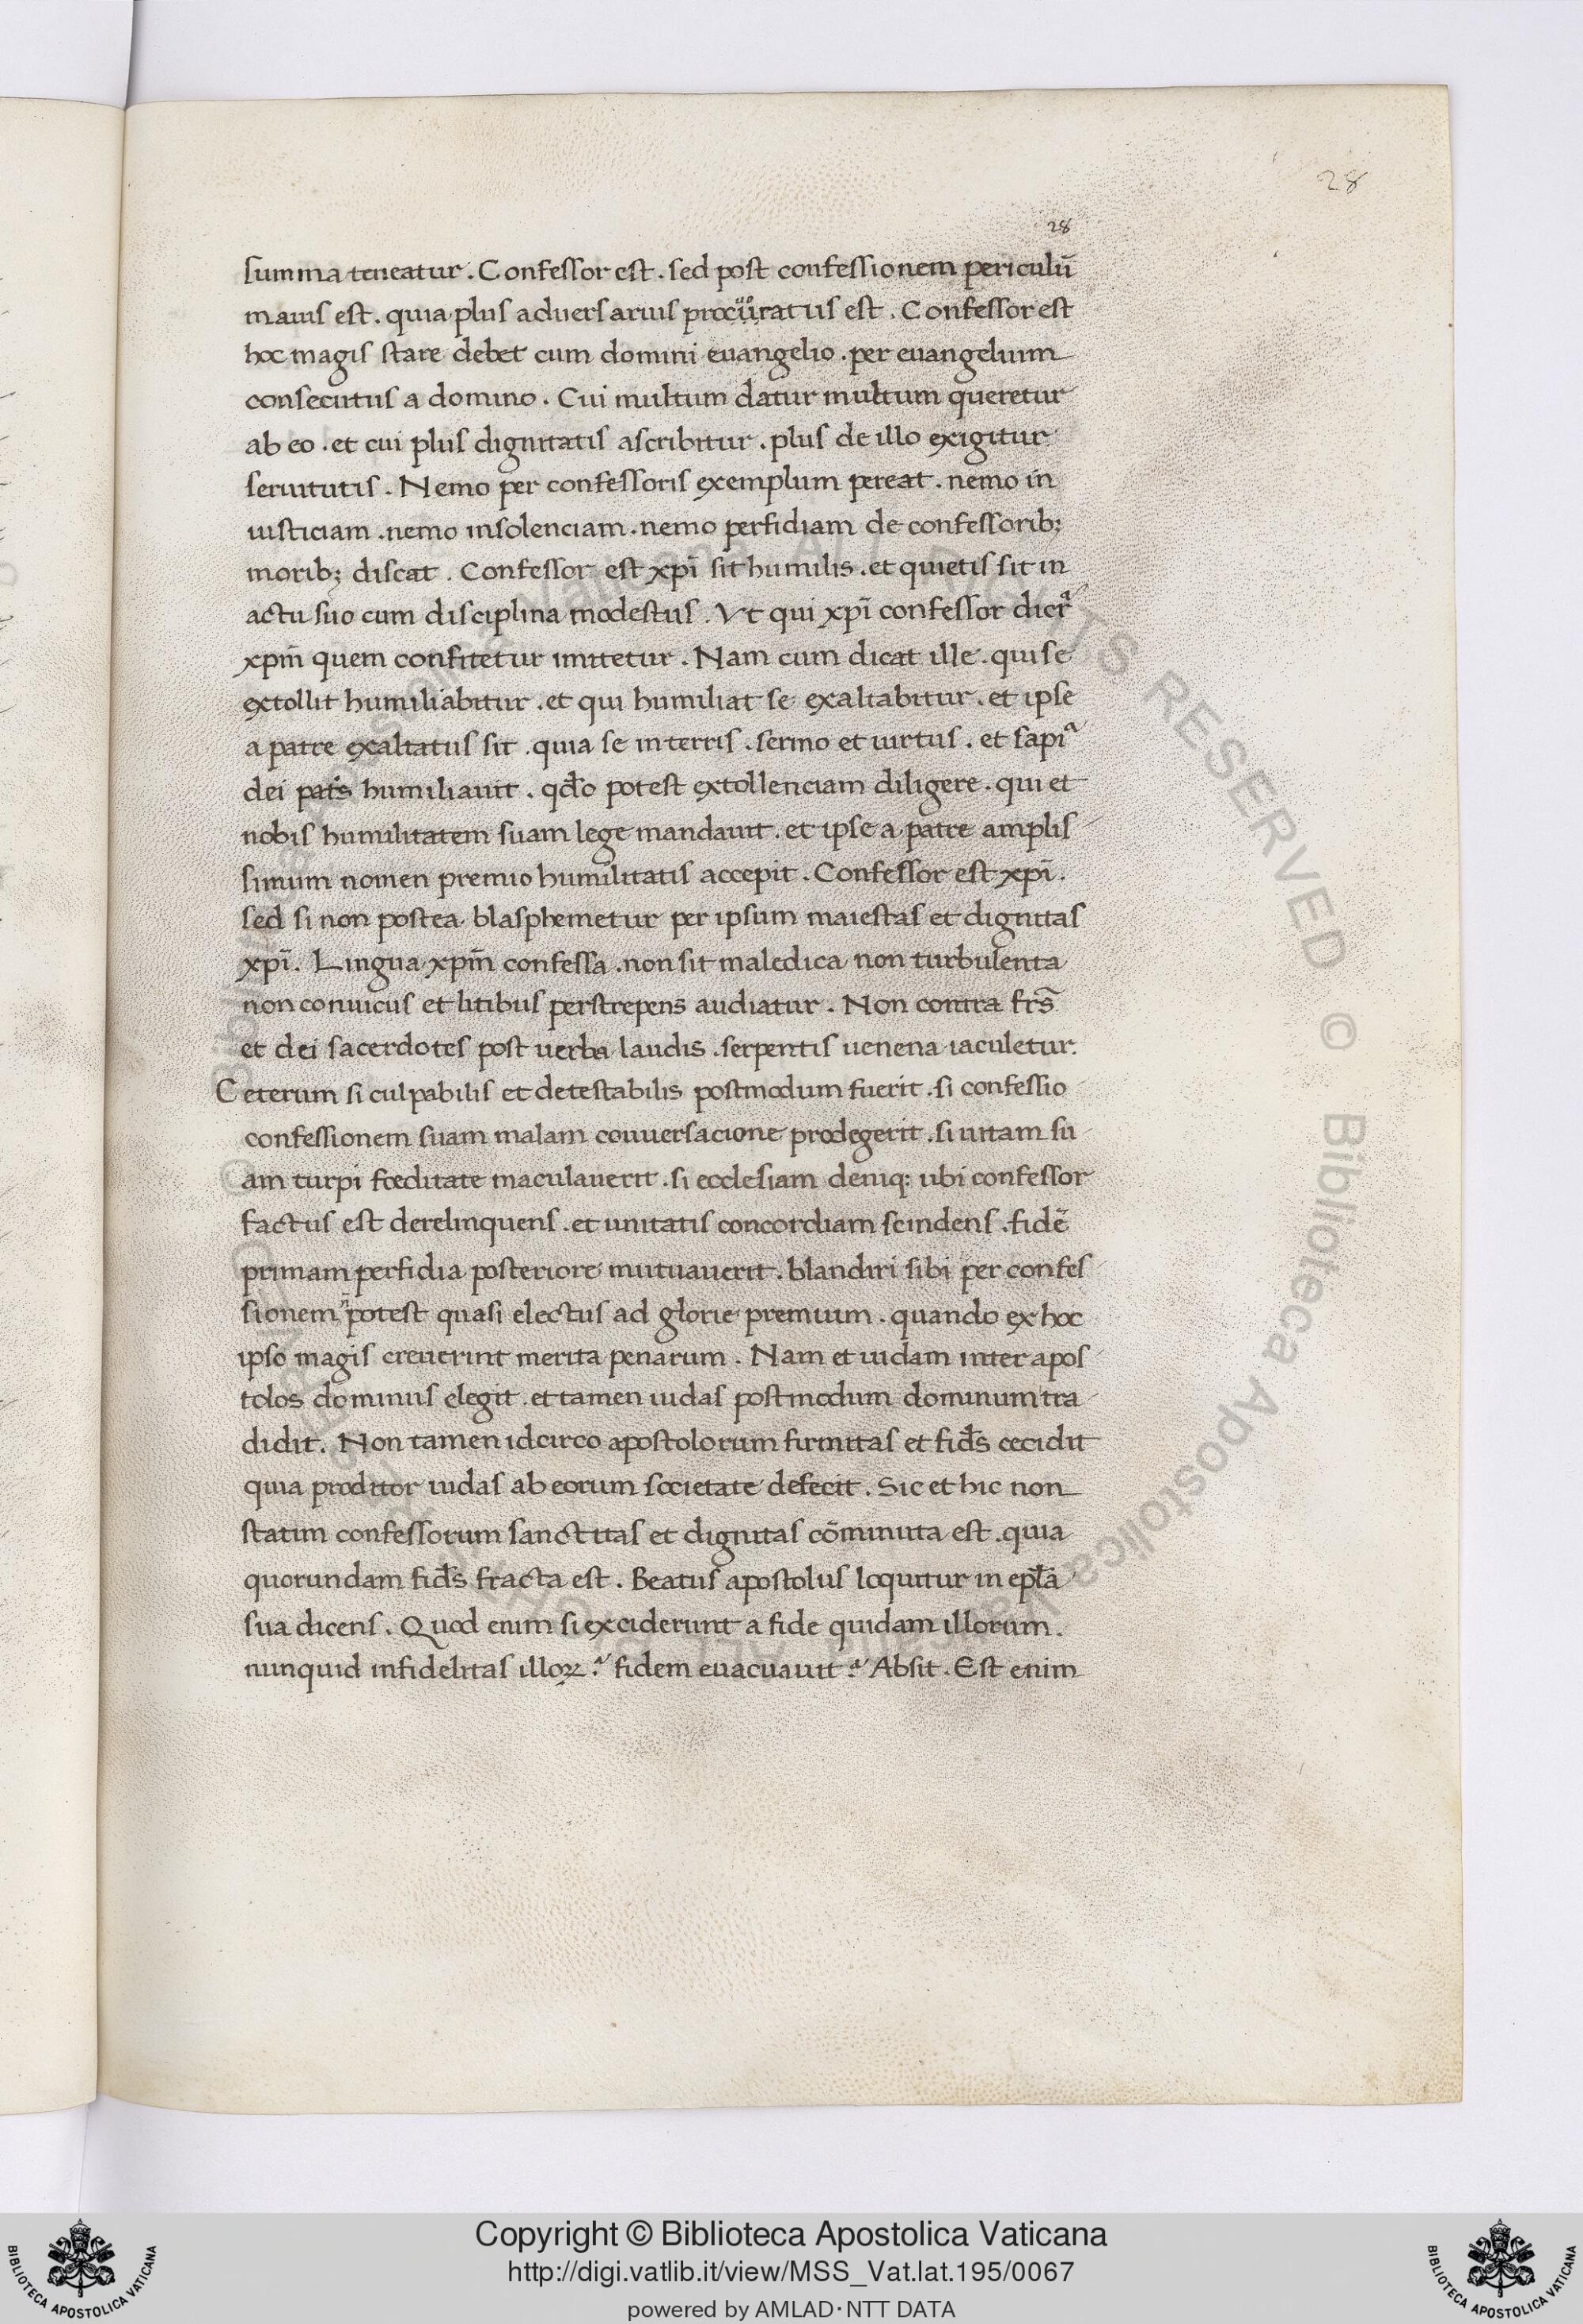 28
28
summa teneatur . Confessor est . sed post confessionem periculū
maius est . quia plus aduersarius est . Confessor est
hoc magis stare debet cum domini euangelio . per euangelium
consecutus a domino . Cui multum datur multum queretur
ab eo . et cui plus dignitatis ascribitur . plus de illo exigitur
seruitutis . Nemo per confessoris exemplum pereat . nemo in
iusticiam . nemo insolenciam . nemo perfidiam de confessorib;
morib; discat . Confessor est xpī sit humilis . et quietis sit in
actu suo cum disciplina modestus . Vt qui xpī confessor
xpm̄ quem confitetur imitetur . Nam cum dicat ille . qui se
extollit humiliabitur . et qui humiliat se exaltabitur . et ipse
a patre exaltatus sit . quia se in terris . sermo et uirtus . et sapiᵃ
dei humiliauit . potest extollenciam diligere . qui et
nobis humilitatem suam lege mandauit . et ipse a patre amplis
simum nomen premio humilitatis accepit . Confessor est xpī .
sed si non postea blasphemetur per ipsum maiestas et dignitas
xpī . Lingua xpm̄ confessa . non sit maledica non turbulenta
non conuicus et litibus perstrepens audiatur . Non contra fr̄s
et dei sacerdotes post uerba laudis . serpentis uenena iaculetur .
Ceterum si culpabilis et detestabilis postmodum fuerit . si confessio
confessionem suam malam conuersacione prodegerit . si uitam su
am turpi fœditate maculauerit . si ecclesiam deniq: ubi confessor
factus est derelinquens . et unitatis concordiam scindens . fidē
primam perfidia posteriore mutuauerit . blandiri sibi per confes
sionem n̄ potest quasi electus ad glorie premium . quando ex hoc
ipso magis creuerint merita penarum . Nam et iudam inter apos
tolos dominus elegit . et tamen iudas postmodum dominum tra
didit . Non tamen idcirco apostolorum firmitas et fid̄s cecidit
quia proditor iudas ab eorum societate defecit . Sic et hic non
statim confessorum sanctitas et dignitas cōminuta est . quia
quorundam fid̄s fracta est . Beatus apostolus loquitur in epl̄a
sua dicens . Quod enim si exciderunt a fide quidam illorum .
nunquid infidelitas illoꝝ ? fidem euacuauit ? Absit . Est enim
Copyright © Biblioteca Apostolica Vaticana
http://digi.vatlib.it/view/MSS_Vat.lat.195/0067
powered by AMLAD·NTT DATA
BIBLIOTECA APOSTOLICA VATICANA
BIBLIOTECA APOSTOLICA VATICANA